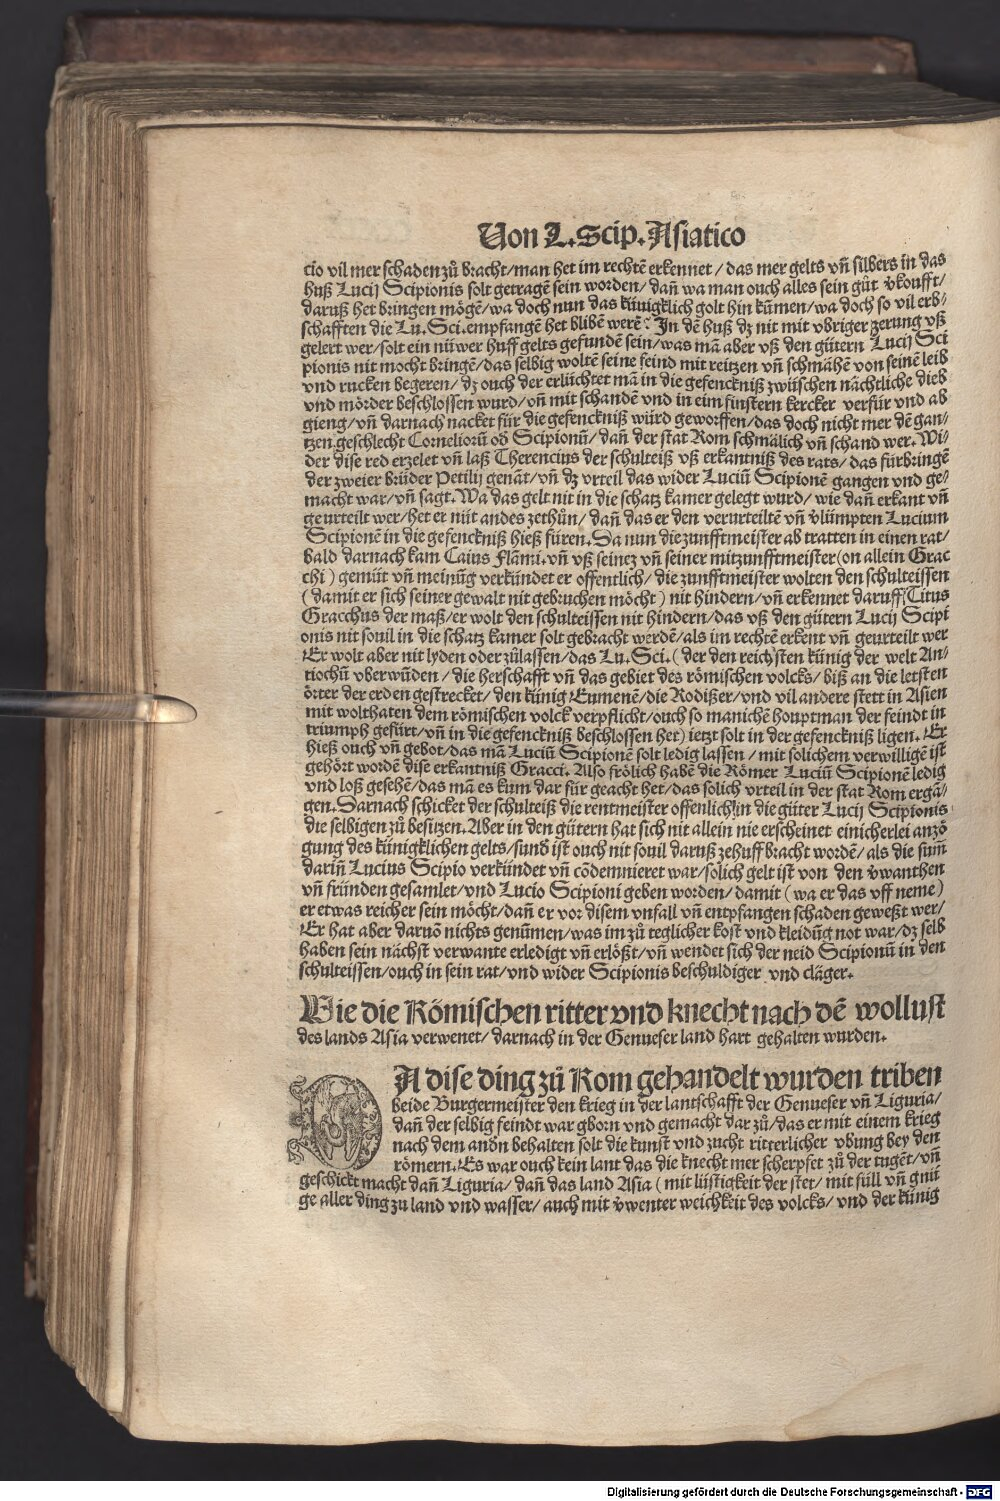 Von L. Scip. Asiatico
cio vil mer schaden zů bracht/man het im rechtẽ erkennet/ das mer gelts vñ silbers in das
huß Lucij Scipionis solt getragẽ sein worden/ dañ wa man ouch alles sein gůt v̈koufft/
daruß het bringen mögẽ/wa doch nun das künigklich golt hin kümen/wa doch so vil erb⸗
schafften die Lu. Sci. empfangẽ het blibẽ werẽ? In dẽ huß dz nit mit vbriger zerung vß
gelert wer/solt ein nüwer huff gelts gefundẽ sein/was mã aber vß den gütern Lucij Sci
pionis nit mocht bringẽ/das selbig woltẽ seine feind mit reitzen vñ schmähẽ von seinẽ leib
vnd rucken begeren/ dz ouch der erlüchtet mã in die gefenckniß zwüschen nächtliche dieb
vnd mörder beschlossen wurd/vñ mit schandẽ vnd in eim finstern kercker verfür vnd ab
gieng/vñ darnach nacket für die gefenckniß würd geworffen/das doch nicht mer dẽ gan⸗
tzen geschlecht Corneliorũ oð Scipionũ/ dañ der stat Rom schmälich vñ schand wer. Wi⸗
der dise red erzelet vñ laß Therencius der schulteiß vß erkantniß des rats/ das fürbringẽ
der zweier brüder Petilij genãt/vñ dz vrteil das wider Luciũ Scipionẽ gangen vnd ge⸗
macht war/vñ sagt. Wa das gelt nit in die schatz kamer gelegt wurd/ wie dañ erkant vñ
geurteilt wer/het er nüt andes zethůn/ dañ das er den verurteiltẽ vñ v̈lümpten Lucium
Scipionẽ in die gefenckniß hieß füren. Da nun die zunfftmeister ab tratten in einen rat/
bald darnach kam Caius Flãmi. vñ vß seinez vñ seiner mitzunfftmeister(on allein Grac
chi) gemüt vñ meinũg verkündet er offentlich/ die zunfftmeister wolten den schulteissen
(damit er sich seiner gewalt nit gebruchen möcht) nit hindern/vñ erkennet daruff Titus
Gracchus der maß/er wolt den schulteissen nit hindern/das vß den gütern Lucij Scipi
onis nit souil in die schatz kamer solt gebracht werdẽ/als im rechtẽ erkent vñ geurteilt wer
Er wolt aber nit lyden oder zůlassen/das Lu. Sci. (der den reichsten künig der welt An⸗
tiochũ vberwũden/ die herschafft vñ das gebiet des römischen volcks/ biß an die letsten
örter der erden gestrecket/ den künig Eumenẽ/die Rodißer/vnd vil andere stett in Asien
mit wolthaten dem römischen volck verpflicht/ouch so manichẽ houptman der feindt in
triumph gefürt/vñ in die gefenckniß beschlossen het) ietzt solt in der gefenckniß ligen. Er
hieß ouch vñ gebot/das mã Luciũ Scipionẽ solt ledig lassen/ mit solichem verwilligẽ ist
gehört wordẽ dise erkantniß Gracci. Also frölich habẽ die Römer Luciũ Scipionẽ ledig
vnd loß gesehẽ/das mã es kum dar für geacht het/das solich vrteil in der stat Rom ergã⸗
gen. Darnach schicket der schulteiß die rentmeister offenlich in die güter Lucij Scipionis
die selbigen zů besitzen. Aber in den gütern hat sich nit allein nie erscheinet einicherlei anzö
gung des künigklichen gelts/sunð ist ouch nit souil daruß zehuff bracht wordẽ/als die sum̃
dariñ Lucius Scipio verkündet vñ cõdemnieret war/solich gelt ist von den v̈wanthen
vñ fründen gesamlet/vnd Lucio Scipioni geben worden/ damit (wa er das vff neme)
er etwas reicher sein möcht/dañ er vor disem vnfall vñ entpfangen schaden geweßt wer/
Er hat aber daruõ nichts genũmen/was im zů teglicher kost vnd kleidũg not war/dz selb
haben sein nächst verwante erledigt vñ erlößt/vñ wendet sich der neid Scipionũ in den
schulteissen/ouch in sein rat/vnd wider Scipionis beschuldiger vnd cläger.
Wie die Römischen ritter vnd knecht nach dẽ wollust
des lands Asia verwenet/ darnach in der Genueser land hart gehalten wurden.
DA dise ding zů Rom gehandelt wurden triben
beide Burgermeister den krieg in der lantschafft der Genueser vñ Liguria/
dañ der selbig feindt war gborn vnd gemacht dar zů/das er mit einem krieg
nach dem anðn behalten solt die kunst vnd zucht ritterlicher vbung bey den
römern. Es war ouch kein lant das die knecht mer scherpfet zů der tugẽt/vñ
geschickt macht dañ Liguria/ dañ das land Asia (mit lüstigkeit der stet/ mit füll vñ gnũ
ge aller ding zu land vnd wasser/ auch mit v̈wenter weichkeit des volcks/ vnd der künig
Digitalisierung gefördert durch die Deutsche Forschungsgemeinschaft - DFG